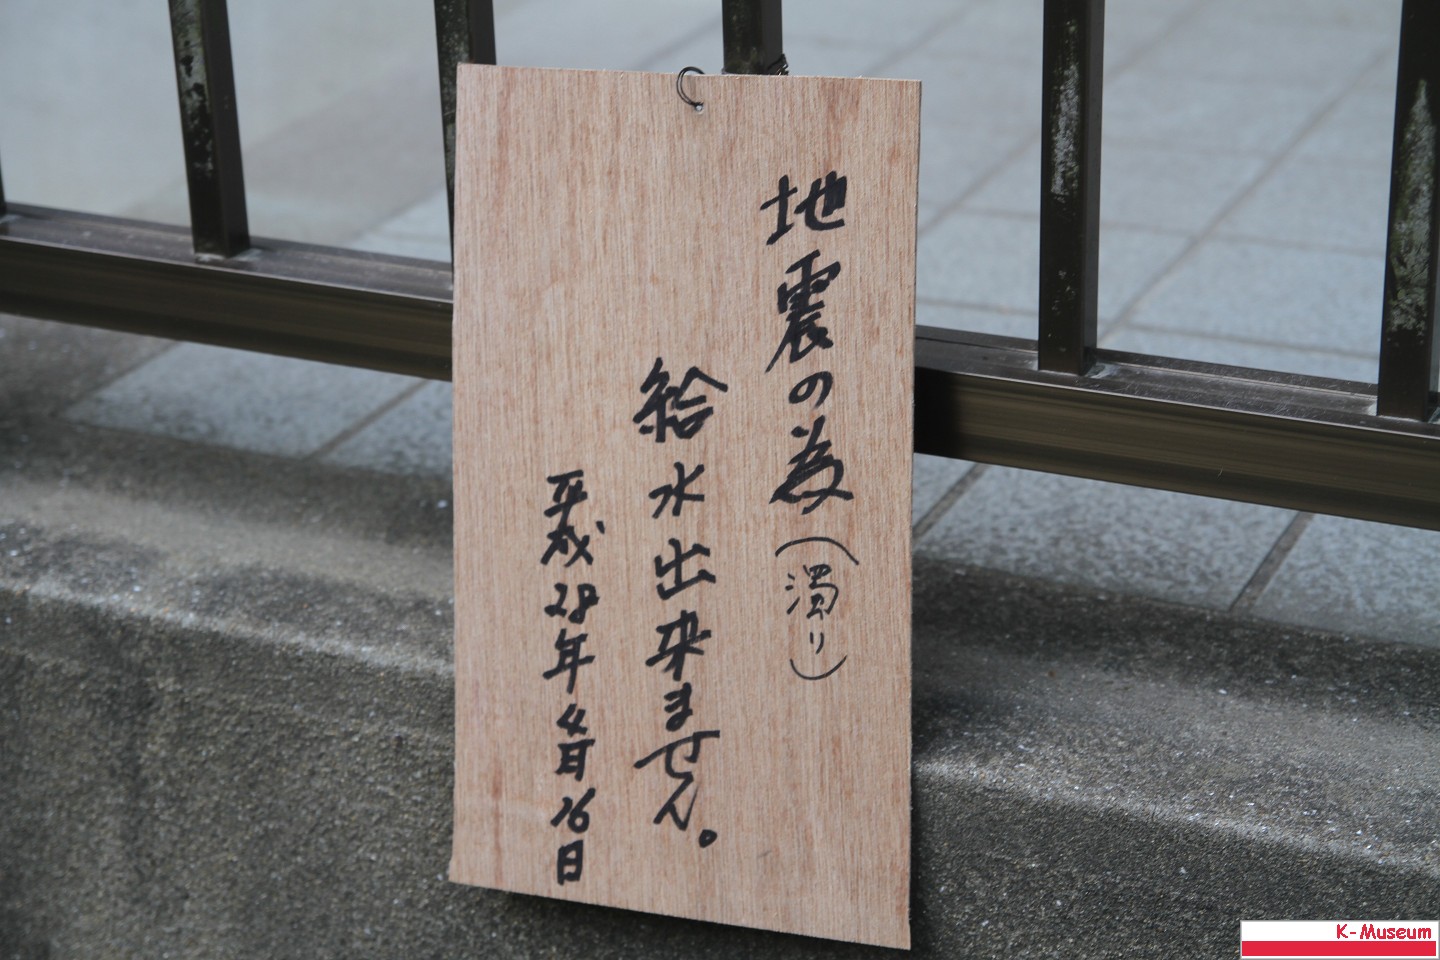 地震の為(濁り)
給水出来ません。
平成28年4月16日
K-Museum